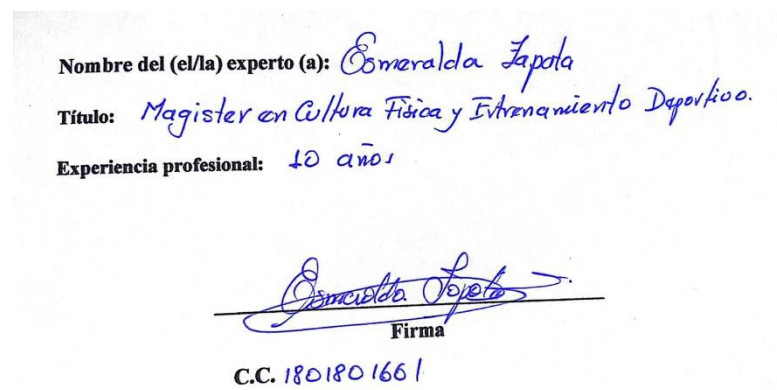 Nombre del (el/la) experto (a): Esmeralda Zapata
Título: Magister en Cultura Física y Entrenamiento Deportivo.
Experiencia profesional: 10 años
Esmeralda Zapata
Firma
C.C. 1801801661